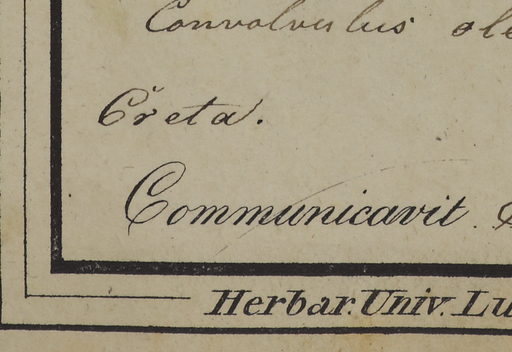 Convolvulus ole
Creta.
Communicavit.
Herbar. Univ. Lu